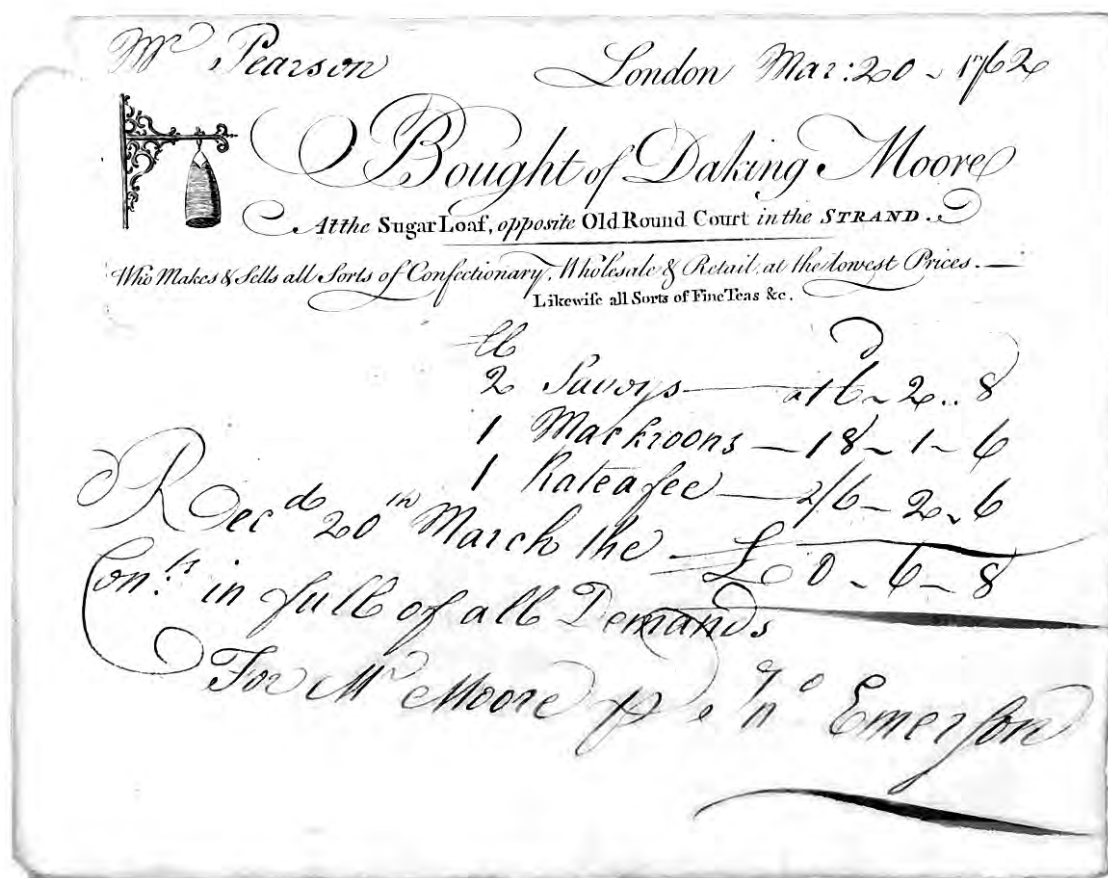 Mr Pearson London Mar: 20 - 1762
Bought of Daking Moore
At the Sugar Loaf, opposite Old Round Court in the STRAND.
Who Makes & Sells all Sorts of Confectionary, Wholesale & Retail, at the lowest Prices.
Likewise all Sorts of Fine Teas &c.
lb
2 Savoys — at 16 - 2 .. 8
1 Mackroons — 18 - 1 - 6
1 Rateafee — 2/6 - 2 - 6
£ 0 - 6 - 8
Recd 20th March the
Conts in full of all Demands
For Mr Moore Jno Emerson